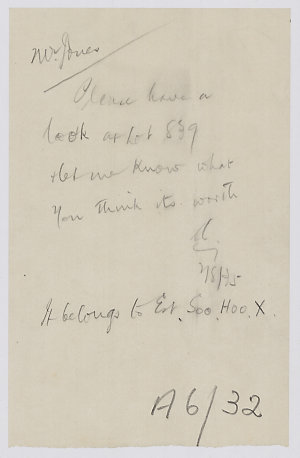 Mr Jones
Please have a
look at Lot 839
& let me know what
you think its worth
It belongs to Est. Soo. Hoo. X.
A6/32